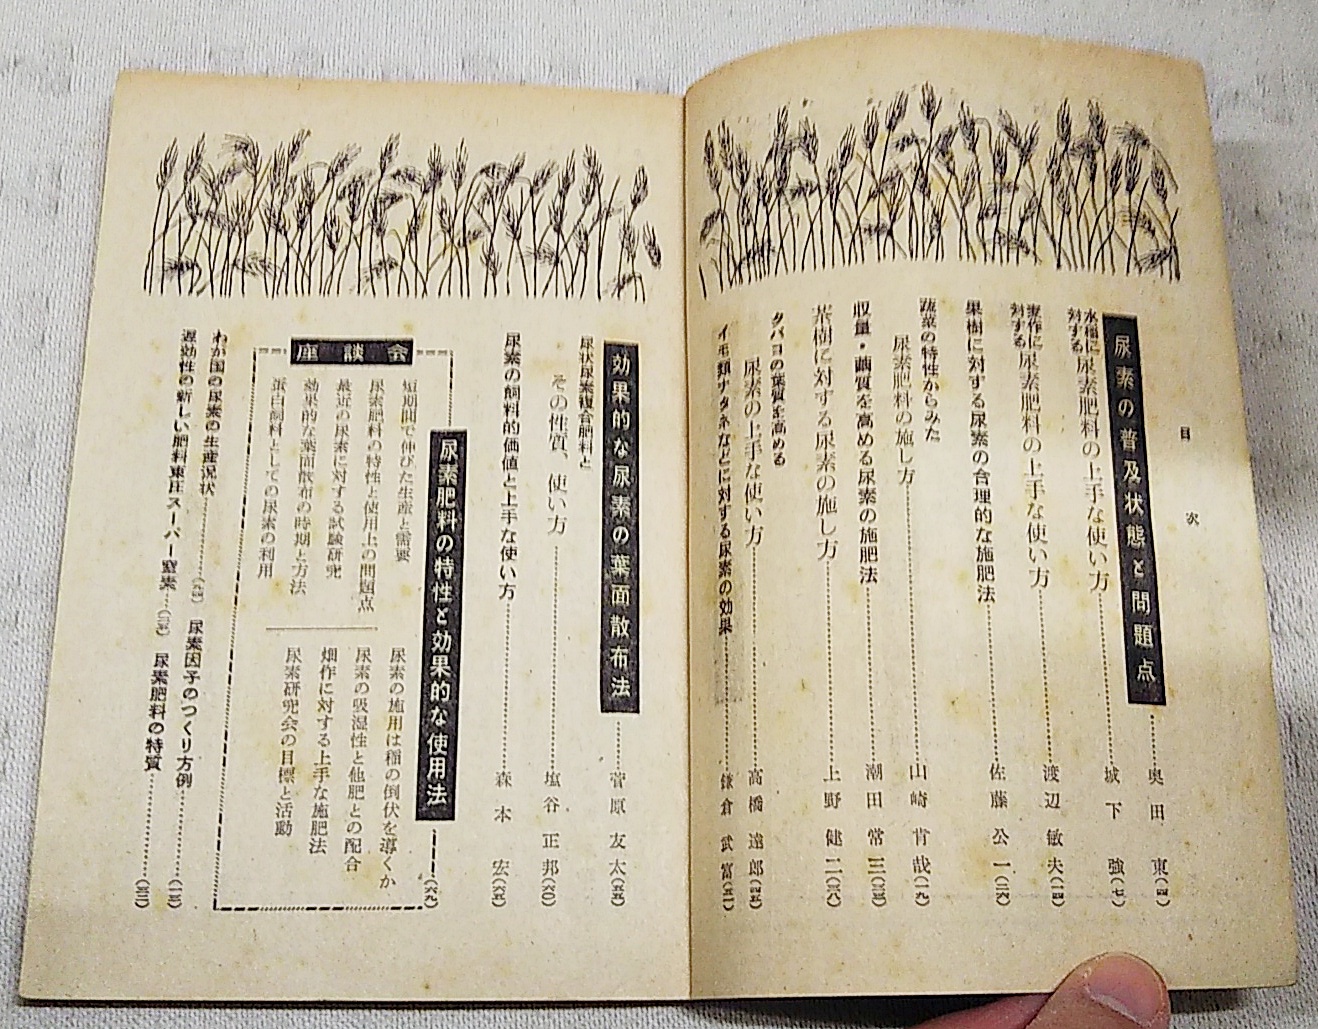 目次
尿素の普及状態と問題点……奥田東(四)
水稲に対する尿素肥料の上手な使い方……城下強(七)
麦作に対する尿素肥料の上手な使い方……渡辺敏夫(一四)
果樹に対する尿素の合理的な施肥法……佐藤公一(二六)
蔬菜の特性からみた
尿素肥料の施し方……山崎肯哉(一九)
収量・繭質を高める尿素の施肥法……潮田常三
茶樹に対する尿素の施し方……上野健二(三八)
タバコの葉質を高める
尿素の上手な使い方……高橋達郎(四五)
イモ類ナタネなどに対する尿素の効果……鎌倉武富(五一)
効果的な尿素の葉面散布法……菅原友太(五五)
尿状尿素複合肥料と
その性質、使い方……塩谷正邦(六〇)
尿素の飼料的価値と上手な使い方……森本宏(六五)
座談会
尿素肥料の特性と効果的な使用法……(六九)
短期間で伸びた生産と需要
尿素肥料の特性と使用上の問題点
最近の尿素に対する試験研究
効果的な葉面散布の時期と方法
蛋白飼料としての尿素の利用
尿素の施用は稲の倒伏を導くか
尿素の吸湿性と他肥との配合
畑作に対する上手な施肥法
尿素研究会の目標と活動
わが国の尿素の生産況状……
尿素因子のつくり方例……
遅効性の新しい肥料東圧スーパー窒素……
尿素肥料の特質……